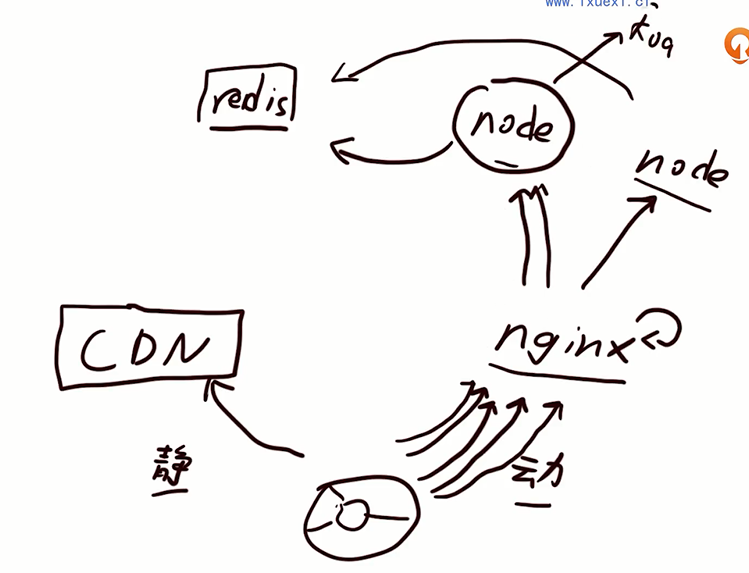 www.ixuexi.ci
redis
node
node
CDN
nginx
静
动